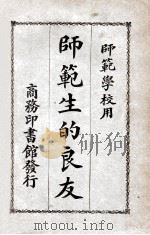 師範學校用
師範生的良友
商務印書館發行
www.jiansou.com